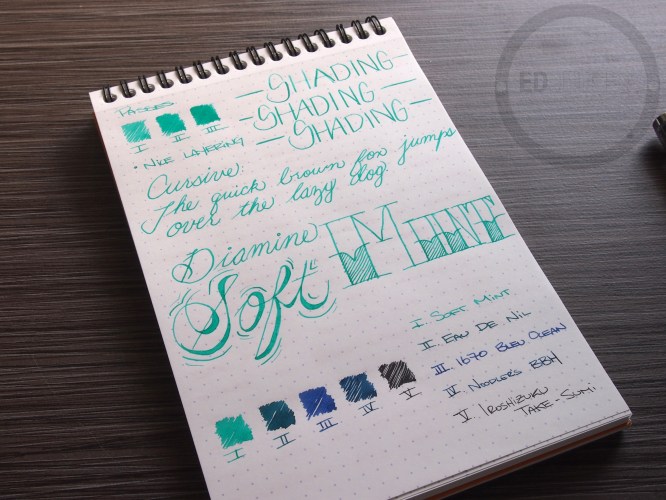 PASSES
I II III
• NICE LAYERING
– SHADING –
– SHADING –
– SHADING –
Cursive:
The quick brown fox jumps
over the lazy dog.
Diamine
Soft Mint
I. SOFT MINT
II. EAU DE NIL
III. 1670 BLEU OCEAN
IV. NOODLERS BBH
V. IROSHIZUKU
TAKE-SUMI
I II III IV V
ED